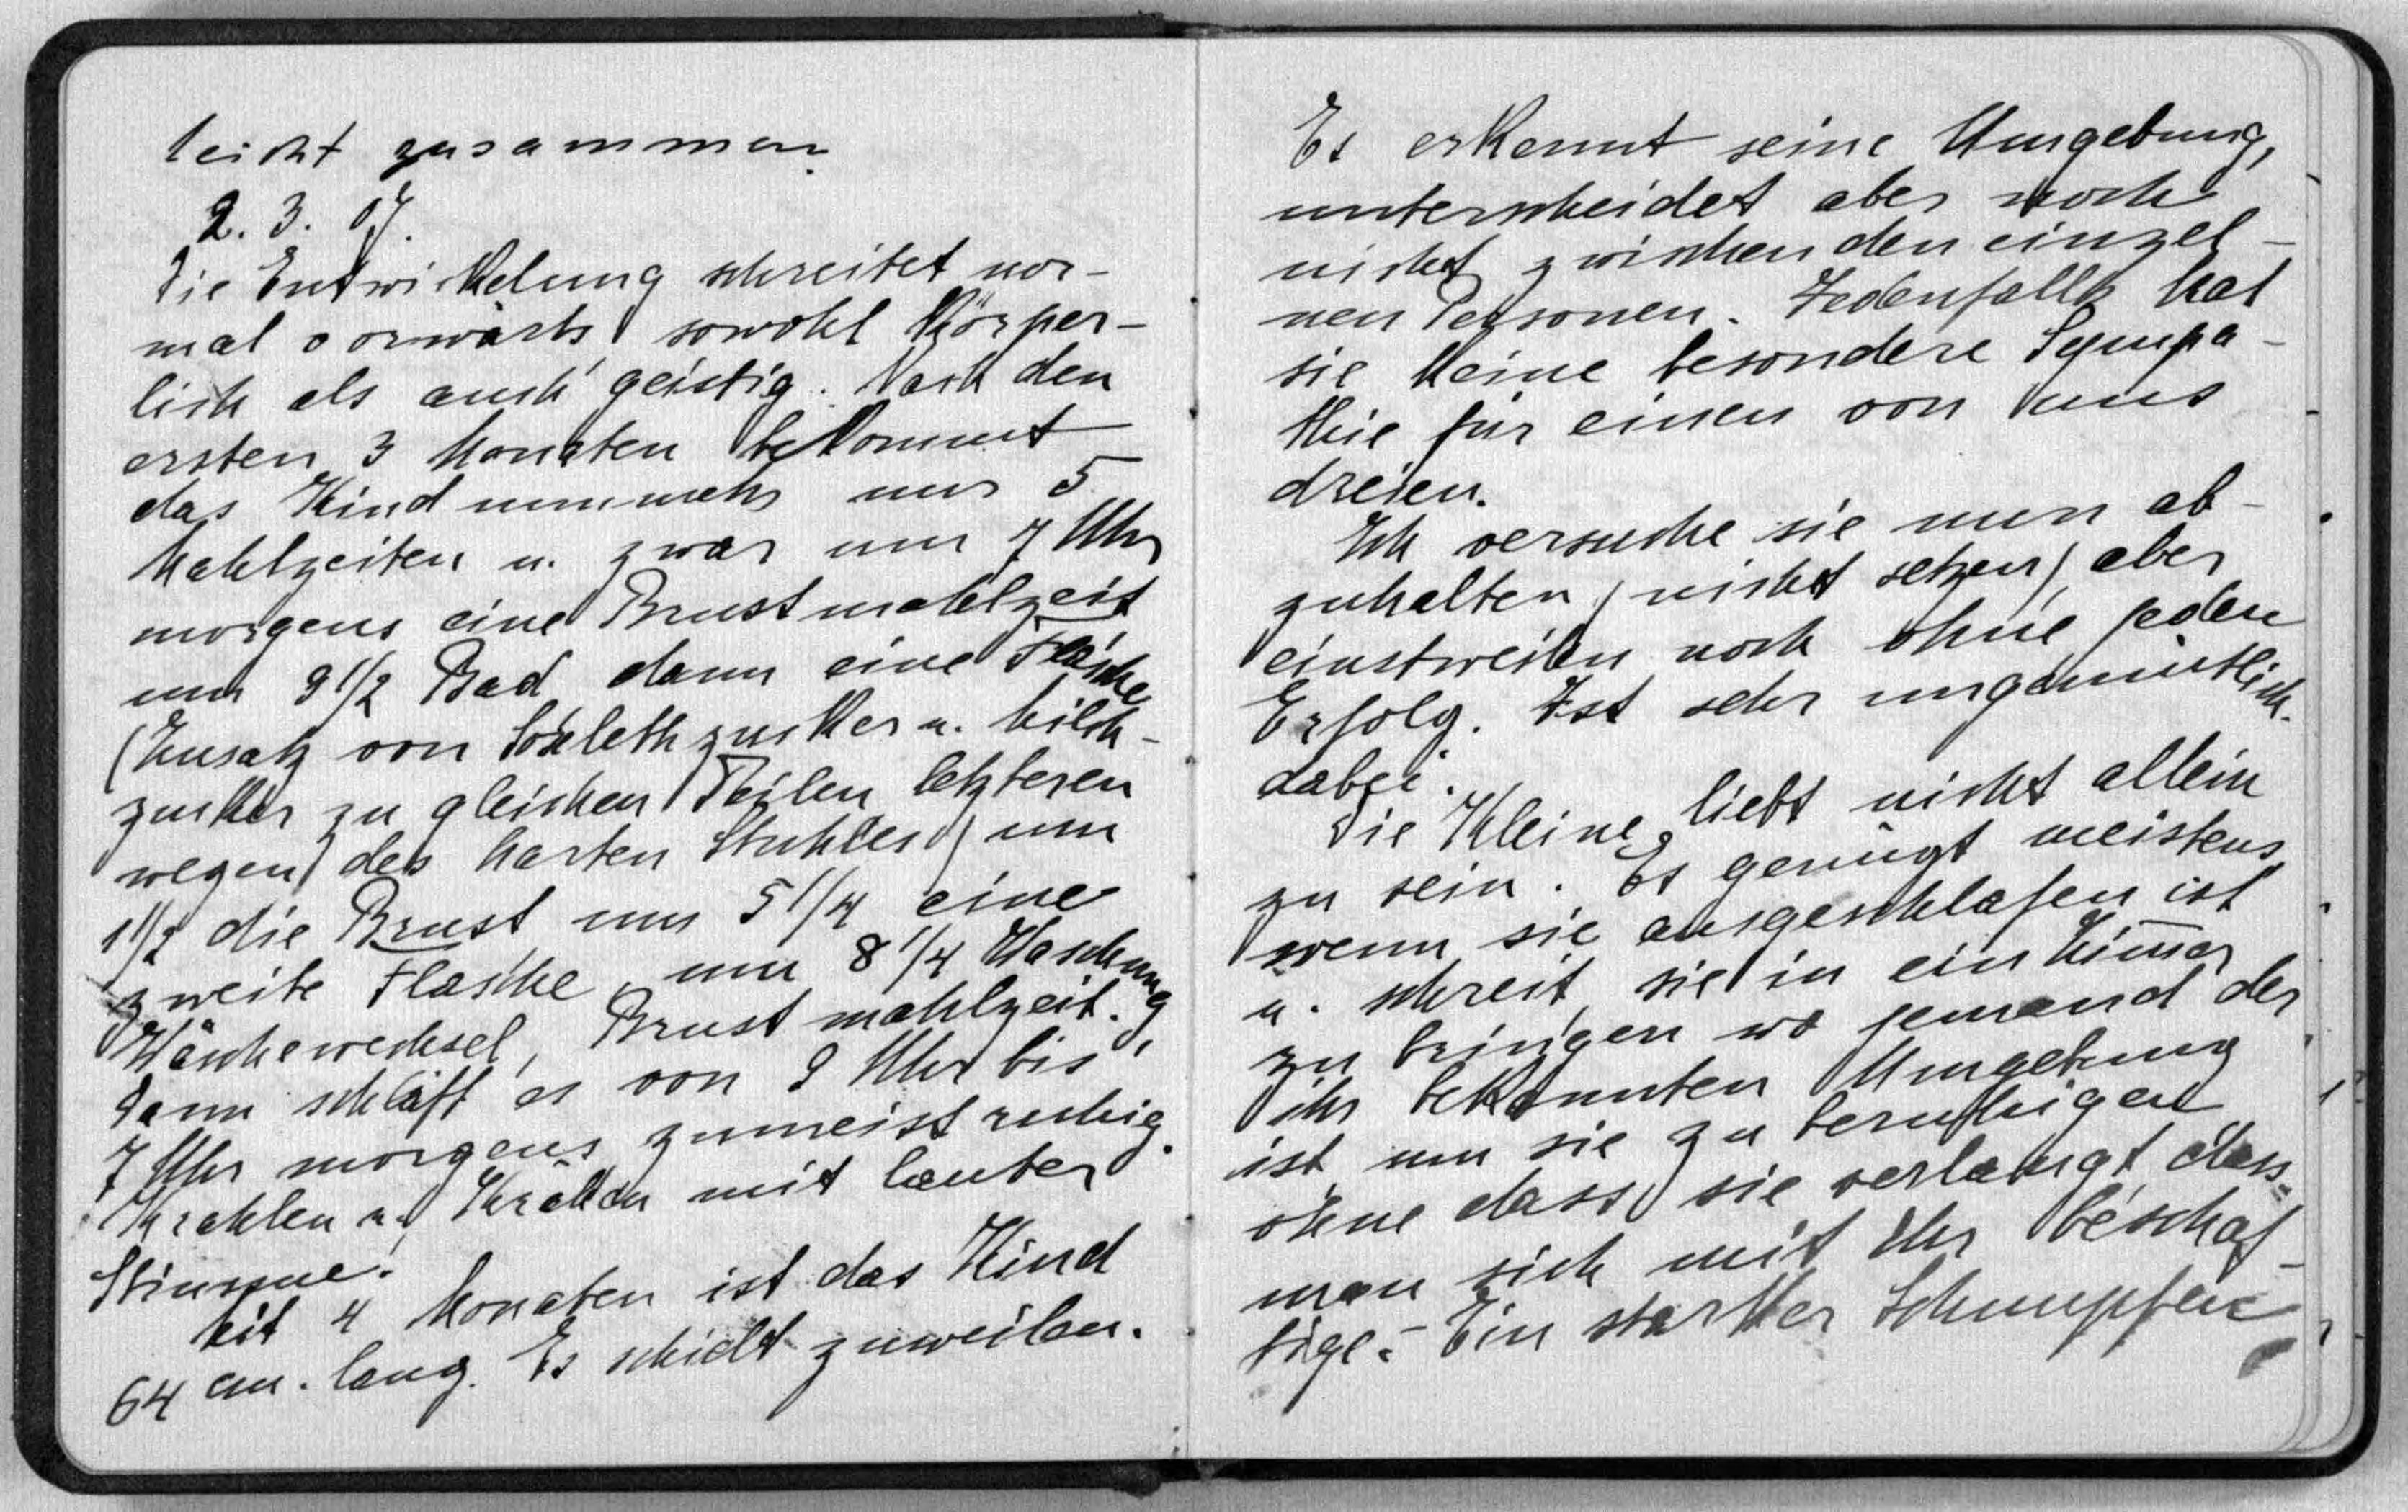 leicht zusammen.
2. 3. 07.
Die Entwickelung schreitet nor-
mal vorwärts sowohl körper-
lich als auch geistig. Nach den
ersten 3 Monaten bekommt
das Kind nunmehr nur 5
Mahlzeiten u. zwar um 7 Uhr
morgens eine Brustmahlzeit
um 9 1/2 Bad dann eine Flasche
(Zusatz von Soxleth zucker u. Milch-
zucker zu gleichen Teilen letzteren
wegen des harten Stuhles) um
1 1/2 die Brust um 5 1/4 eine
zweite Flasche, um 8 1/4 Waschung
Wäschewechsel, Brustmahlzeit.
Dann schläft es von 9 Uhr bis
7 Uhr morgens zumeist ruhig.
Krahlen u. Krähen mit lauter
Stimme.
Mit 4 Monaten ist das Kind
64 cm. lang. Es schielt zuweilen.
Es erkennt seine Umgebung,
unterscheidet aber noch
nicht zwischen den einzel-
nen Personen. Jedenfalls hat
sie keine besondere Sympa-
thie für einen von uns
dreien.
Ich versuche sie nun ab-
zuhalten (nicht setzen) aber
einstweilen noch ohne jeden
Erfolg. Ist sehr ungemütlich.
dabei.
Die Kleine liebt nicht allein
zu sein. Es genügt meistens,
wenn sie ausgeschlafen ist
u. schreit, sie in ein Zimer
zu bringen wo jemand der
ihr bekannten Umgebung
ist, um sie zu beruhigen
ohne dass sie verlangt, dass
man sich mit Ihr beschäf-
tige. - Ein starker Schnupfen